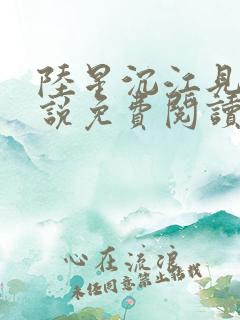 陸星沉江見
說免費閱讀
心在流浪
未經同意禁止轉載